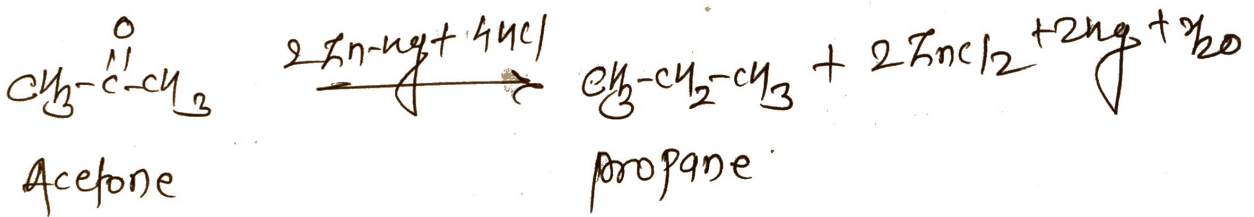 O
CH3-C-CH3 2Zn-Hg+4HCl CH3-CH2-CH3 + 2ZnCl2 +2Hg + H2O
Acetone propane